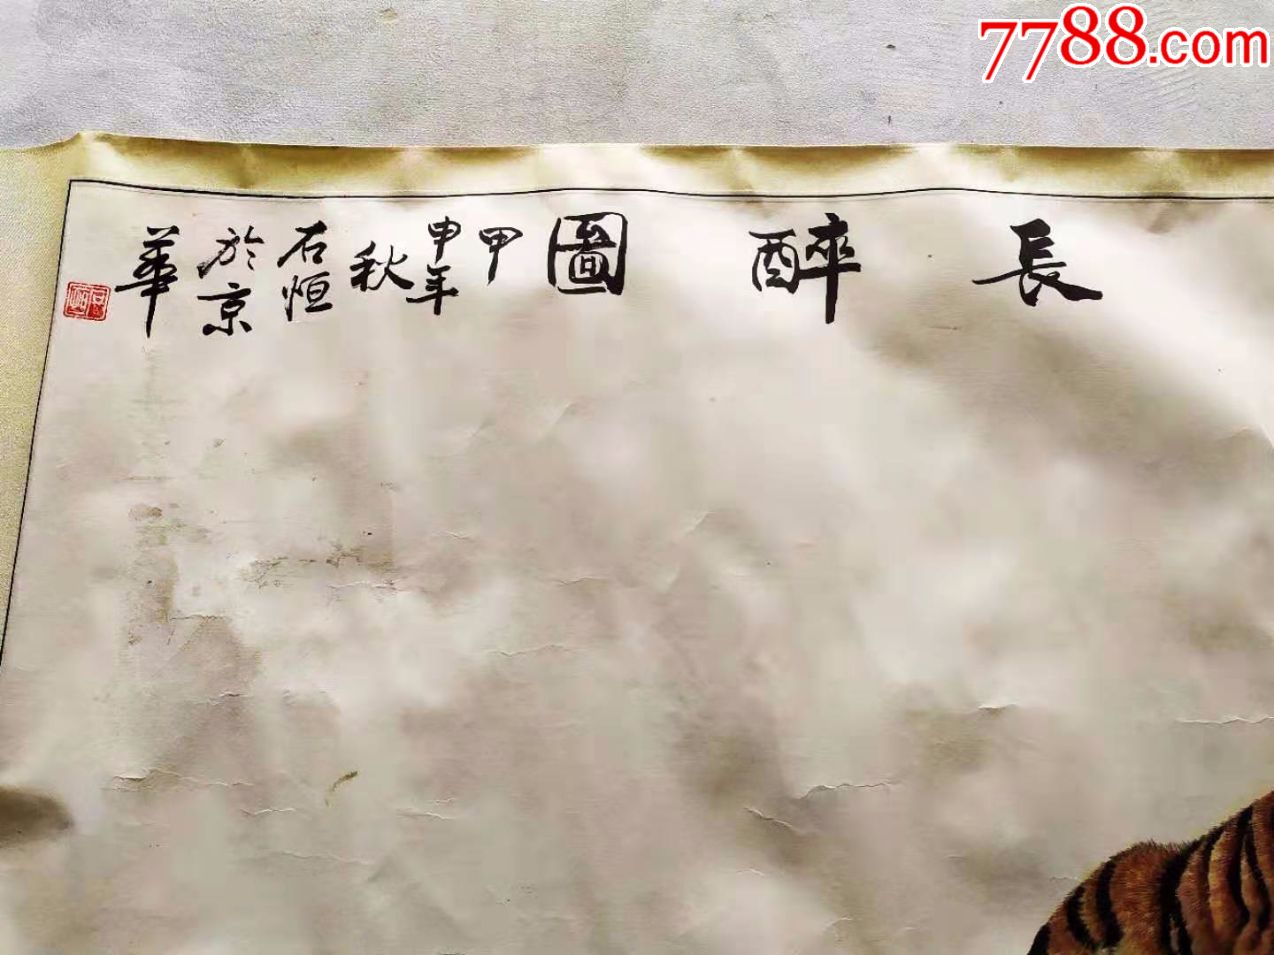 7788.com
長醉圖
甲申年秋石恒於京華